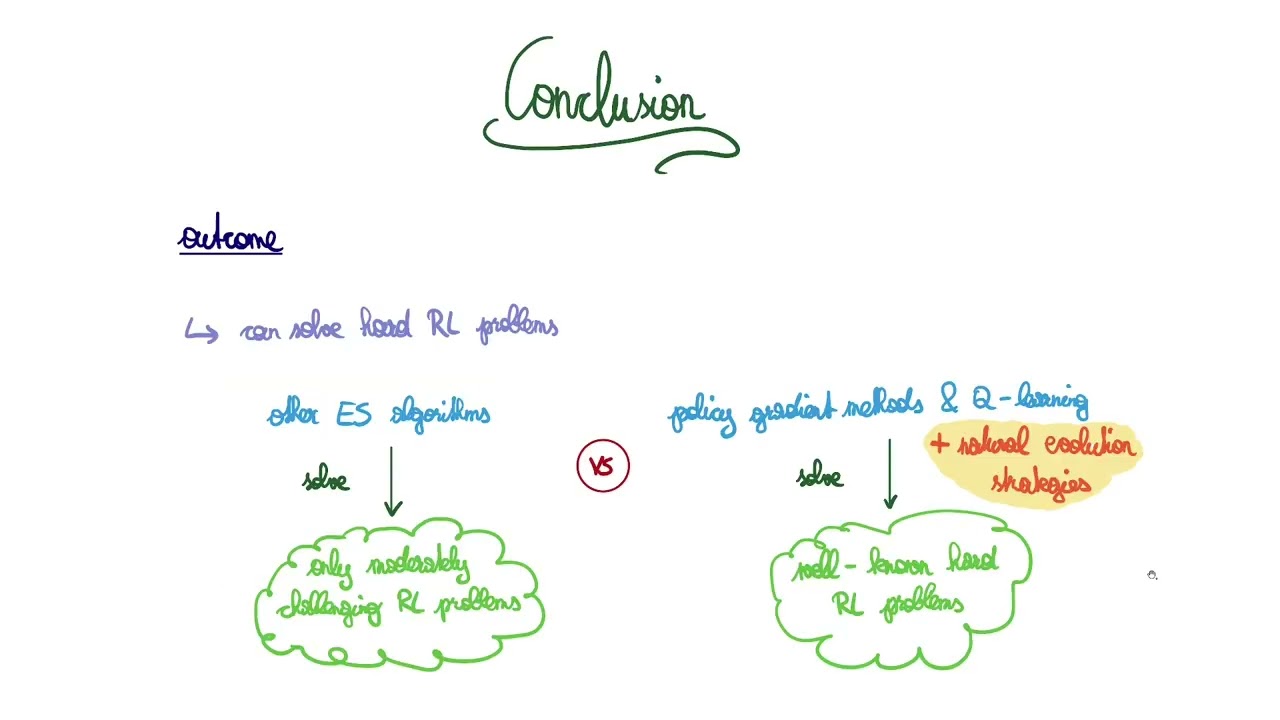 Conclusion
outcome
↳ can solve hard RL problems
other ES algorithms
policy gradient methods & Q-learning
+ natural evolution
strategies
solve
VS
solve
only moderately
challenging RL problems
well-known hard
RL problems